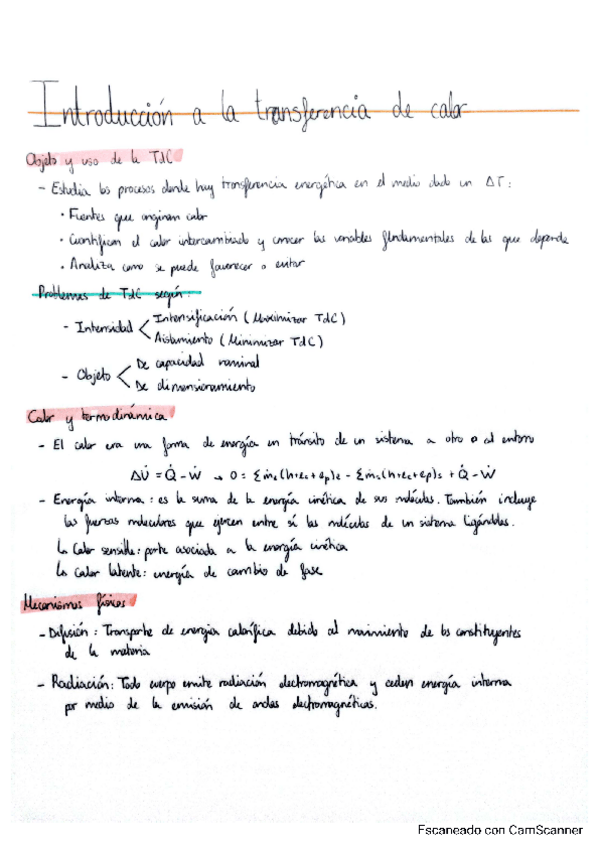 Introducción a la transferencia de calor
Objeto y uso de la TdC
- Estudia los procesos donde hay transferencia energética en el medio dado un ΔT:
· Fuentes que originan calor
· Cuantifican el calor intercambiado y conocer las variables fundamentales de las que depende
· Analiza como se puede favorecer o evitar
Problemas de TdC según:
- Intensidad < Intensificación (Maximizar TdC)
Aislamiento (Minimizar TdC)
- Objeto < De capacidad nominal
De dimensionamiento
Calor y termodinámica
- El calor era una forma de energía en tránsito de un sistema a otro o al entorno
ΔU̇ = Q̇ - Ẇ → 0 = Σṁe(h+ec+ep)e - Σṁs(h+ec+ep)s + Q̇ - Ẇ
- Energía interna: es la suma de la energía cinética de sus moléculas. También incluye
las fuerzas moleculares que ejercen entre sí las moléculas de un sistema ligándolas.
↳ Calor sensible: parte asociada a la energía cinética
↳ Calor latente: energía de cambio de fase
Mecanismos físicos
- Difusión: Transporte de energía calorífica debido al movimiento de los constituyentes
de la materia
- Radiación: Todo cuerpo emite radiación electromagnética y ceden energía interna
por medio de la emisión de ondas electromagnéticas.
Escaneado con CamScanner